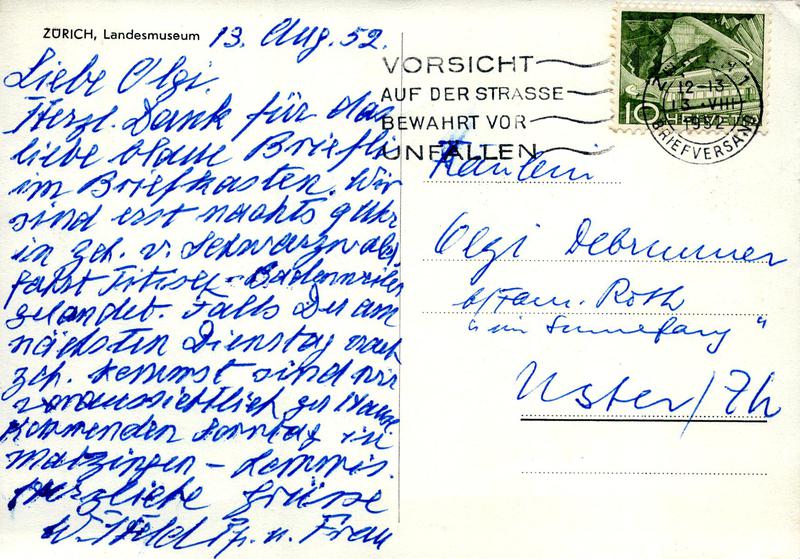 ZÜRICH, Landesmuseum 13. Aug. 52.
Liebe Olgi.
Herzl. Dank für das
liebe blaue Briefli
im Briefkasten. Wir
sind erst nachts 9 Uhr
in Zch. v. Schwarzwald
fahrt Titisee - Badenweiler
gelandet. Falls Du am
nächsten Dienstag nach
Zch. kommst sind wir
voraussichtlich zu Hause.
Kommenden Sonntag in
Matzingen - Lommis.
Herzliche Grüsse
W. Held u. Frau
VORSICHT
AUF DER STRASSE
BEWAHRT VOR
UNFÄLLEN
10 HELVETIA
12-13
13.VIII
1952
BRIEFVERSAND
Fräulein
Olgi Debrunner
b/Fam. Roth
"im Sunnefang"
Uster/Zh